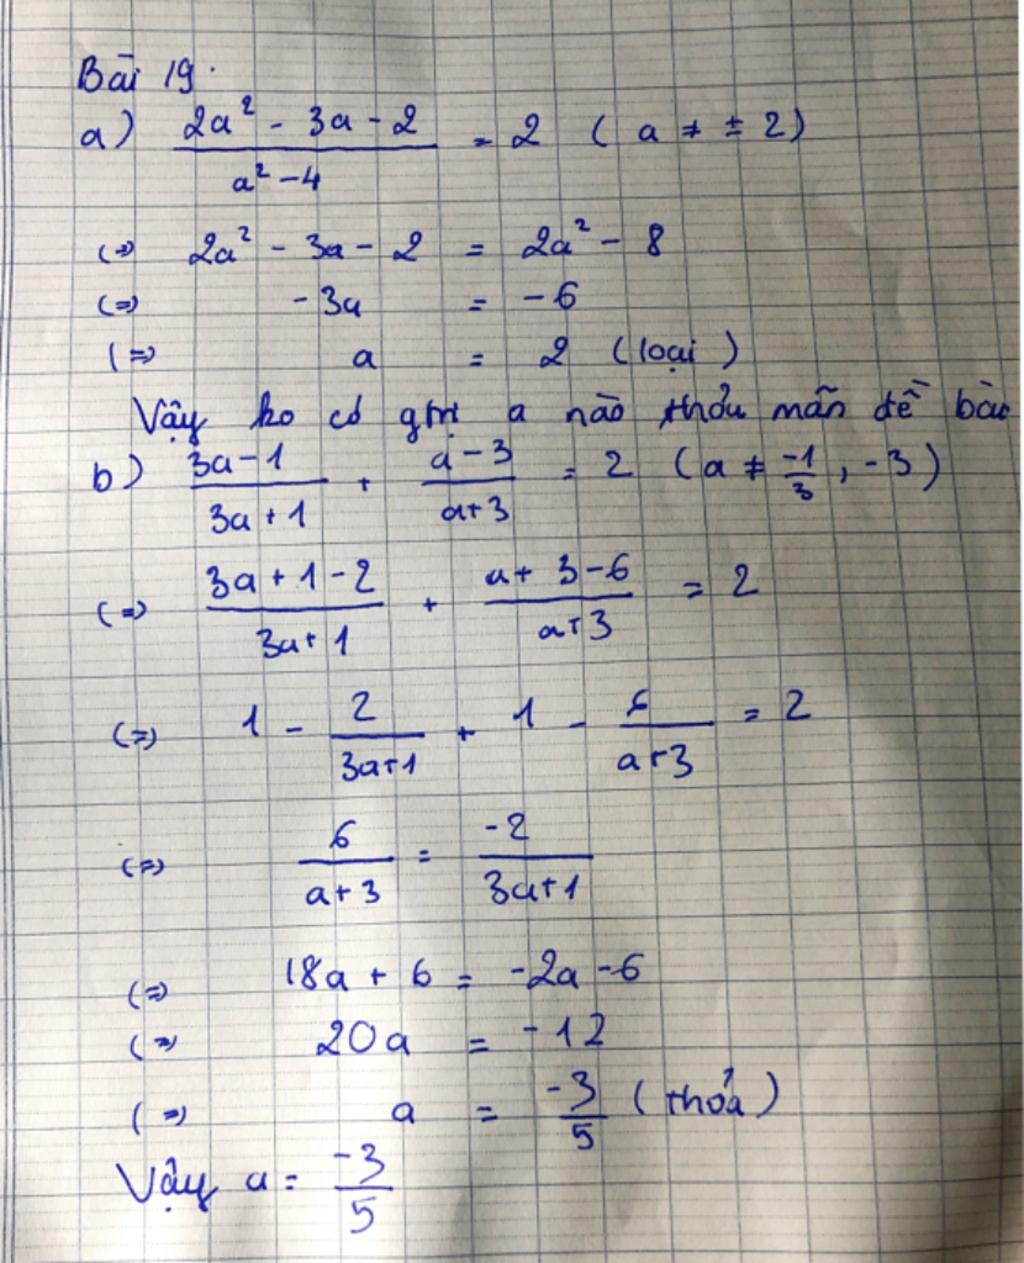 Bài 19.
a) (2a² - 3a - 2)/(a² - 4) = 2 ( a ≠ ± 2)
(=) 2a² - 3a - 2 = 2a² - 8
(=) -3a = -6
(=) a = 2 (loại)
Vậy ko có gtrị a nào thỏa mãn đề bài
b) (3a - 1)/(3a + 1) + (a - 3)/(a + 3) = 2 (a ≠ -1/3, -3)
(=) (3a + 1 - 2)/(3a + 1) + (a + 3 - 6)/(a + 3) = 2
(=) 1 - 2/(3a+1) + 1 - 6/(a+3) = 2
(=) 6/(a+3) = -2/(3a+1)
(=) 18a + 6 = -2a - 6
(=) 20a = -12
(=) a = -3/5 (thỏa)
Vậy a = -3/5